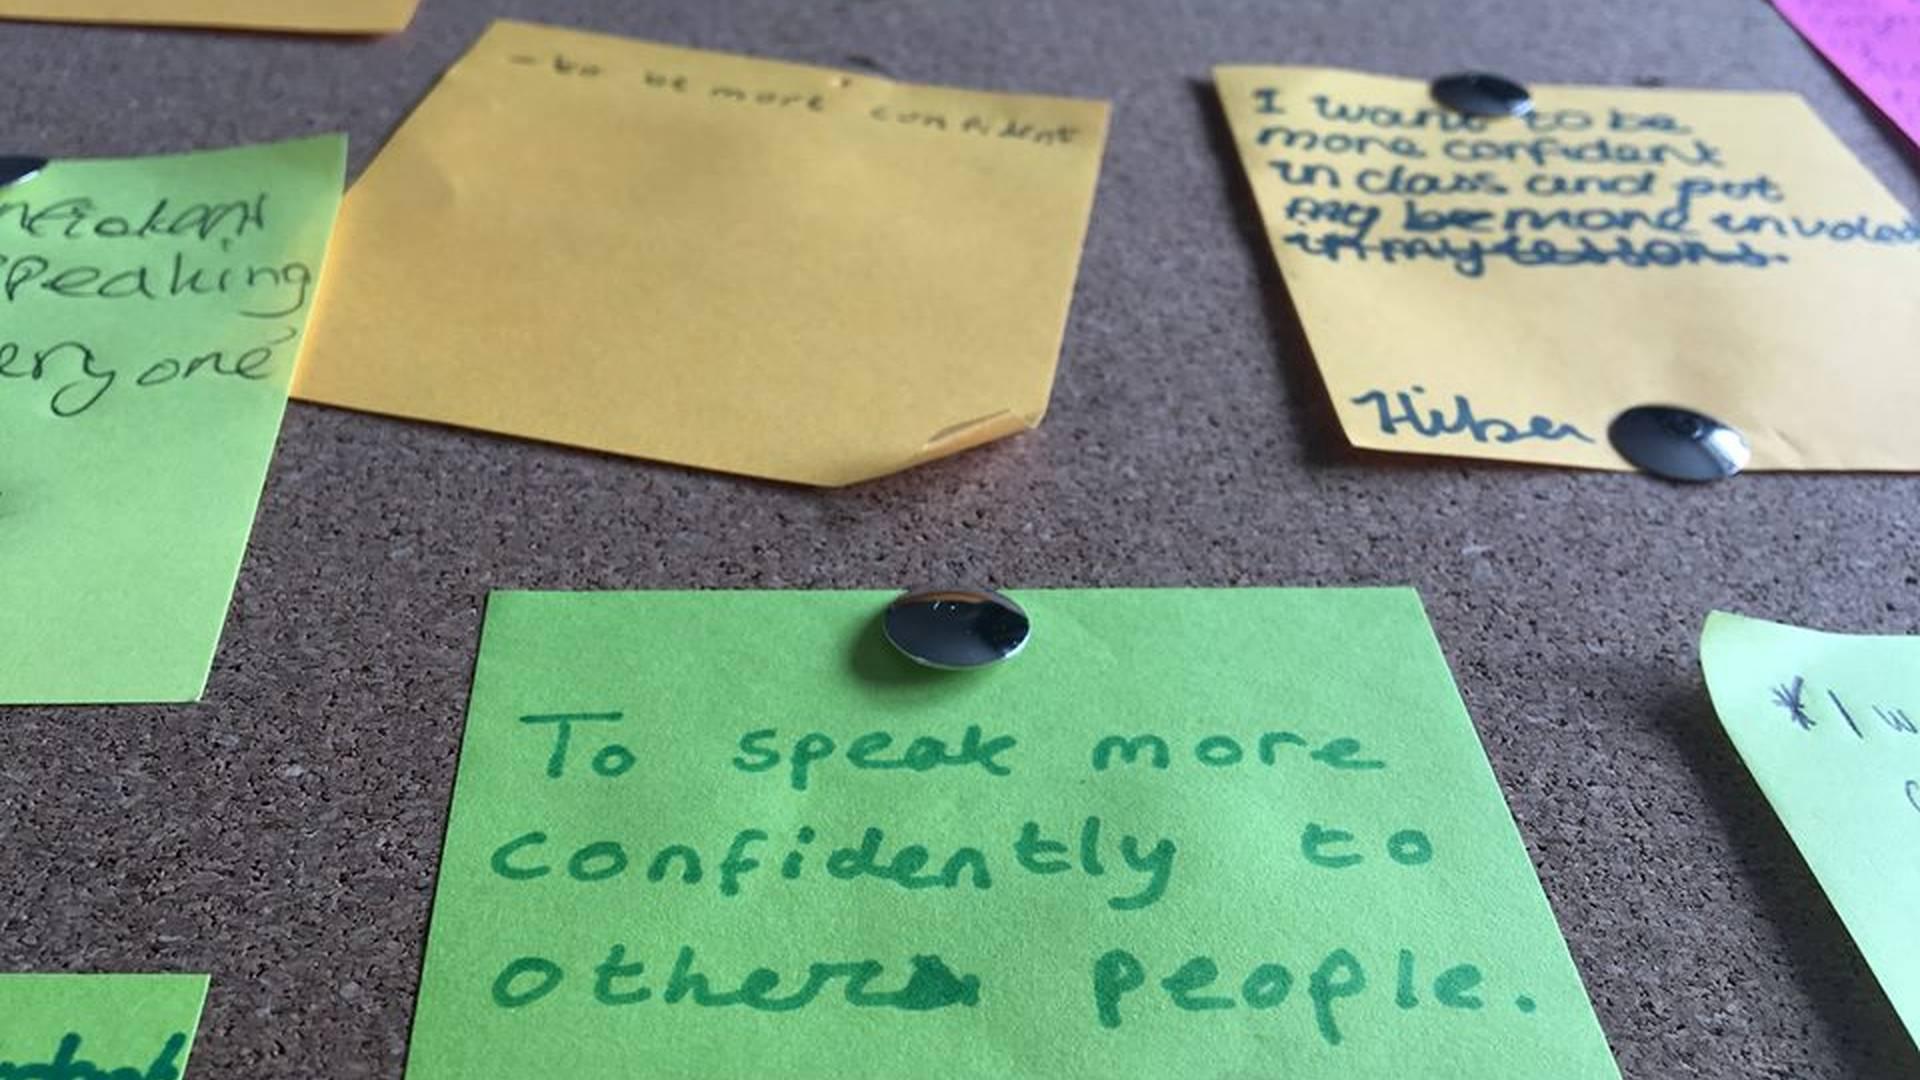 - to be more confident
I want to be
more confident
in class and put
my be more involved
in my lessons.
Hiba
speaking
everyone
To speak more
confidently to
other people.
* I w